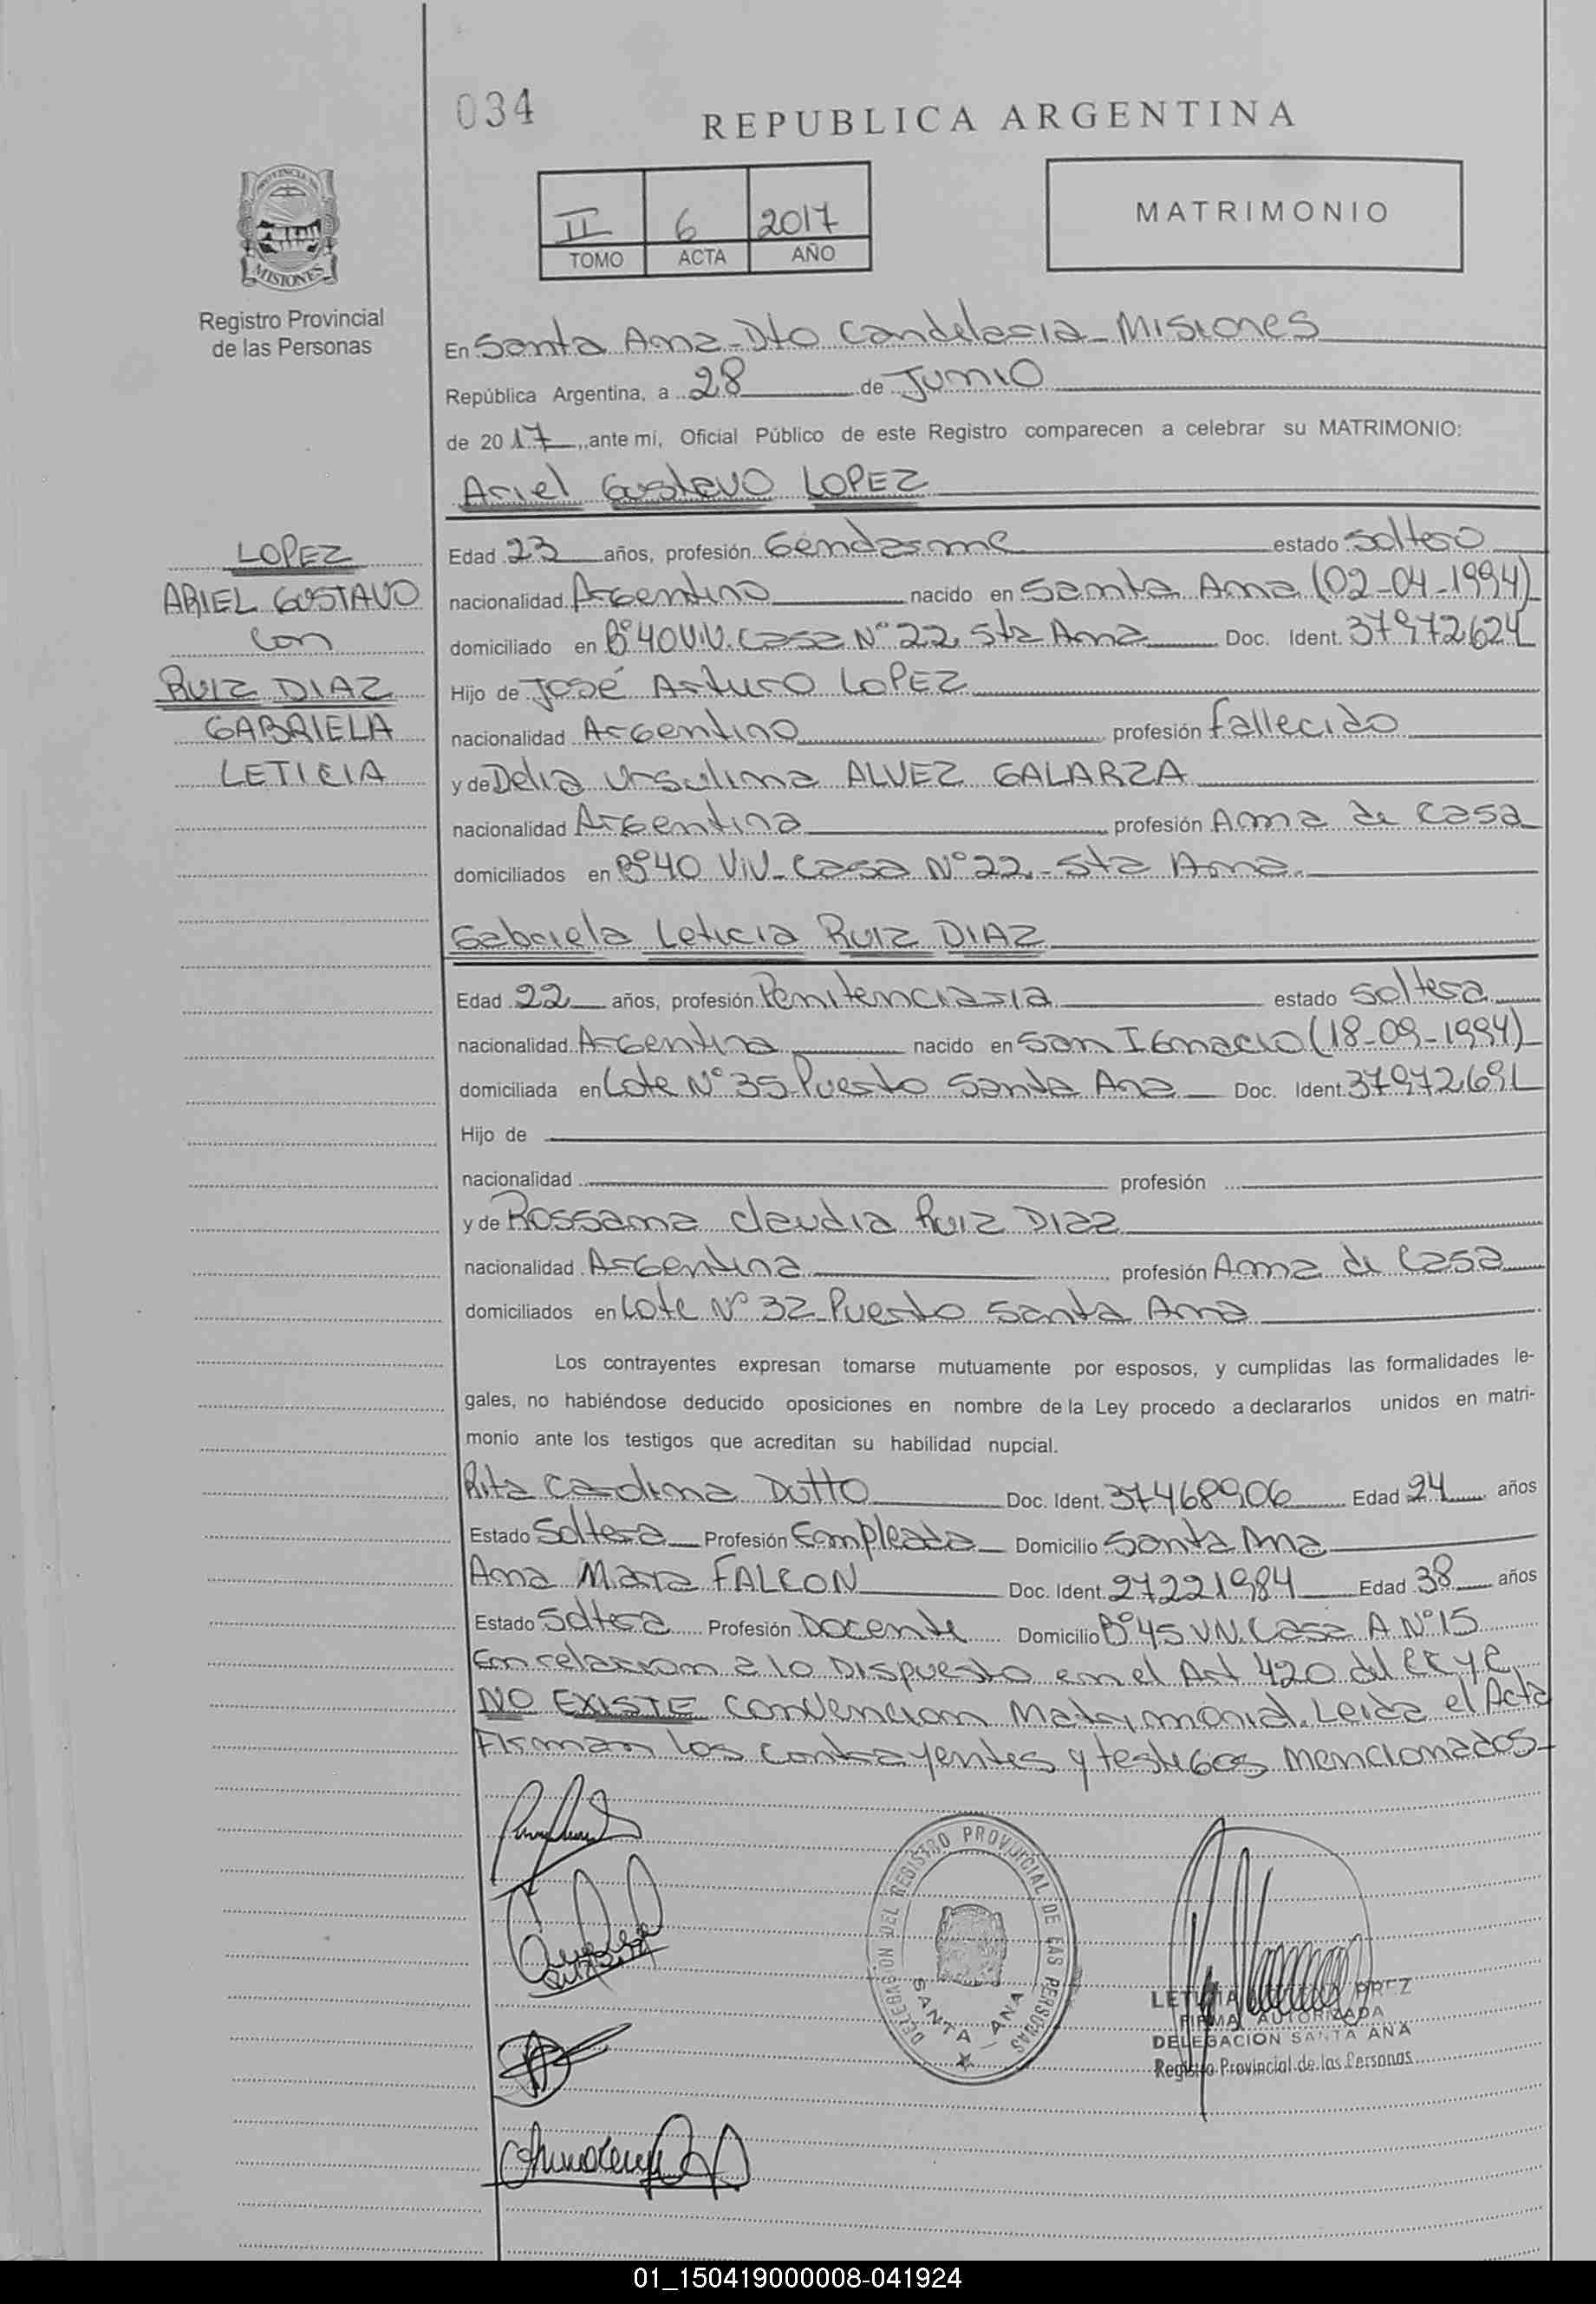 034
REPUBLICA ARGENTINA
PROVINCIA DE
MISIONES
II 6 2017
TOMO ACTA AÑO
MATRIMONIO
Registro Provincial
de las Personas
En Santa Ana - Dto Candelaria - Misiones
República Argentina, a 28 de Junio
de 2017, ante mí, Oficial Público de este Registro comparecen a celebrar su MATRIMONIO:
Ariel Gustavo LOPEZ
LOPEZ
ARIEL GUSTAVO
con
RUIZ DIAZ
GABRIELA
LETICIA
Edad 23 años, profesión Gendarme estado Soltero
nacionalidad Argentino nacido en Santa Ana (02-04-1994)
domiciliado en Bº 40 Viv. Casa Nº 22 Sta Ana Doc. Ident. 37972624
Hijo de José Arturo LOPEZ
nacionalidad Argentino profesión fallecido
y de Delia Ursulina ALVEZ GALARZA
nacionalidad Argentina profesión Ama de Casa
domiciliados en Bº 40 Viv - Casa Nº 22 - Sta Ana.
Gabriela Leticia RUIZ DIAZ
Edad 22 años, profesión Penitenciaria estado Soltera
nacionalidad Argentina nacido en San Ignacio (18-09-1994)
domiciliada en Lote Nº 35 Puerto Santa Ana Doc. Ident. 37972691
Hijo de
nacionalidad profesión
y de Rossana Claudia Ruiz Diaz
nacionalidad Argentina profesión Ama de Casa
domiciliados en Lote Nº 32 - Puerto Santa Ana
Los contrayentes expresan tomarse mutuamente por esposos, y cumplidas las formalidades le-
gales, no habiéndose deducido oposiciones en nombre de la Ley procedo a declararlos unidos en matri-
monio ante los testigos que acreditan su habilidad nupcial.
Rita Carolina Dutto Doc. Ident. 37468906 Edad 24 años
Estado Soltera Profesión Empleada Domicilio Santa Ana
Ana Maria FALCON Doc. Ident. 27221984 Edad 38 años
Estado Soltera Profesión Docente Domicilio Bº 45 Viv. Casa A Nº 15
En relacion a lo Dispuesto en el Art 420 del CC y C,
NO EXISTE convencion Matrimonial. Leida el Acta
Firman los contrayentes y testigos mencionados -
DELEGACION DEL REGISTRO PROVINCIAL DE LAS PERSONAS
SANTA ANA
FIRMA AUTORIZADA
DELEGACION SANTA ANA
Registro Provincial de las Personas
01_150419000008-041924